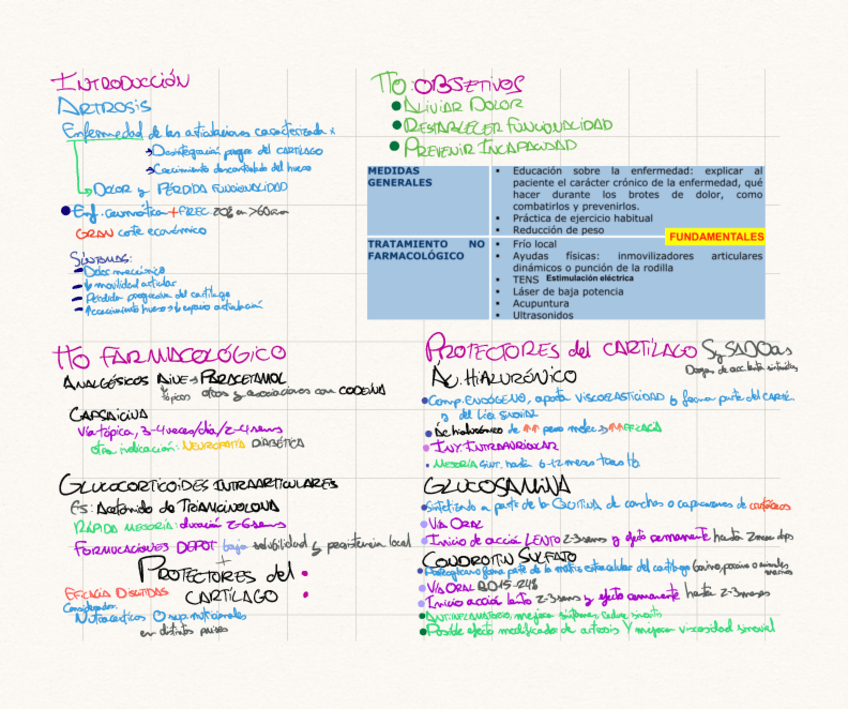 INTRODUCCIÓN
ARTROSIS
Enfermedad de las articulaciones caracterizada x
Desintegración progre. del CARTÍLAGO
Crecimiento descontrolado del hueso
DOLOR y PÉRDIDA FUNCIONALIDAD
Enf. reumática + FREC. 20% en >60años
GRAN coste económico
SÍNTOMAS:
Dolor mecánico
↓ movilidad articular
Pérdida progresiva del cartílago
TTO: OBJETIVOS
ALIVIAR DOLOR
RESTABLECER FUNCIONALIDAD
PREVENIR INCAPACIDAD
MEDIDAS GENERALES
• Educación sobre la enfermedad: explicar al
paciente el carácter crónico de la enfermedad, qué
hacer durante los brotes de dolor, como
combatirlos y prevenirlos.
• Práctica de ejercicio habitual
• Reducción de peso
FUNDAMENTALES
TRATAMIENTO NO
FARMACOLÓGICO
• Frío local
• Ayudas físicas: inmovilizadores articulares
dinámicos o punción de la rodilla
• TENS Estimulación eléctrica
• Láser de baja potencia
• Acupuntura
• Ultrasonidos
TTO FARMACOLÓGICO
ANALGÉSICOS AINE → PARACETAMOL
tópicos otros y asociaciones con CODEÍNA
CAPSAICINA
Vía tópica, 3-4 veces/día/2-4 sems
otra indicación: NEUROPATÍA DIABÉTICA
GLUCOCORTICOIDES INTRAARTICULARES
Es: Acetónido de TRIAMCINOLONA
RÁPIDA MEJORÍA: duración 2-6 sems
FORMULACIONES DEPOT baja solubilidad y persistencia local
+
PROTECTORES del
CARTÍLAGO
EFICACIA DISCUTIDAS
Considerados
Nutracéuticos O sup. nutricionales
en distintos países
PROTECTORES del CARTÍLAGO SYSADOAs
Drogas de acc lenta sintomática
Ác. HIALURÓNICO
Comp. ENDÓGENO, aporta VISCOELASTICIDAD y forma parte del CARTÍL
y del líq SINOVIAL
Ác hialurónico de ↑↑ peso molec → ↑↑ EFICACIA
INY. INTRAARTICULAR
MEJORÍA SINT. hasta 6-12 meses tras tto
GLUCOSAMINA
Sintetizada a partir de la QUITINA de conchas o caparazones de crustáceos
VÍA ORAL
Inicio de acción LENTO 2-3 sems y efecto permanente hasta 2 meses dps
CONDROITÍN SULFATO
VÍA ORAL
Inicio acción lento 2-3 sems y efecto permanente hasta 2-3 meses
ANTIINFLAMATORIO, mejora síntomas
Posible efecto modificador de artrosis Y mejora viscosidad sinovial